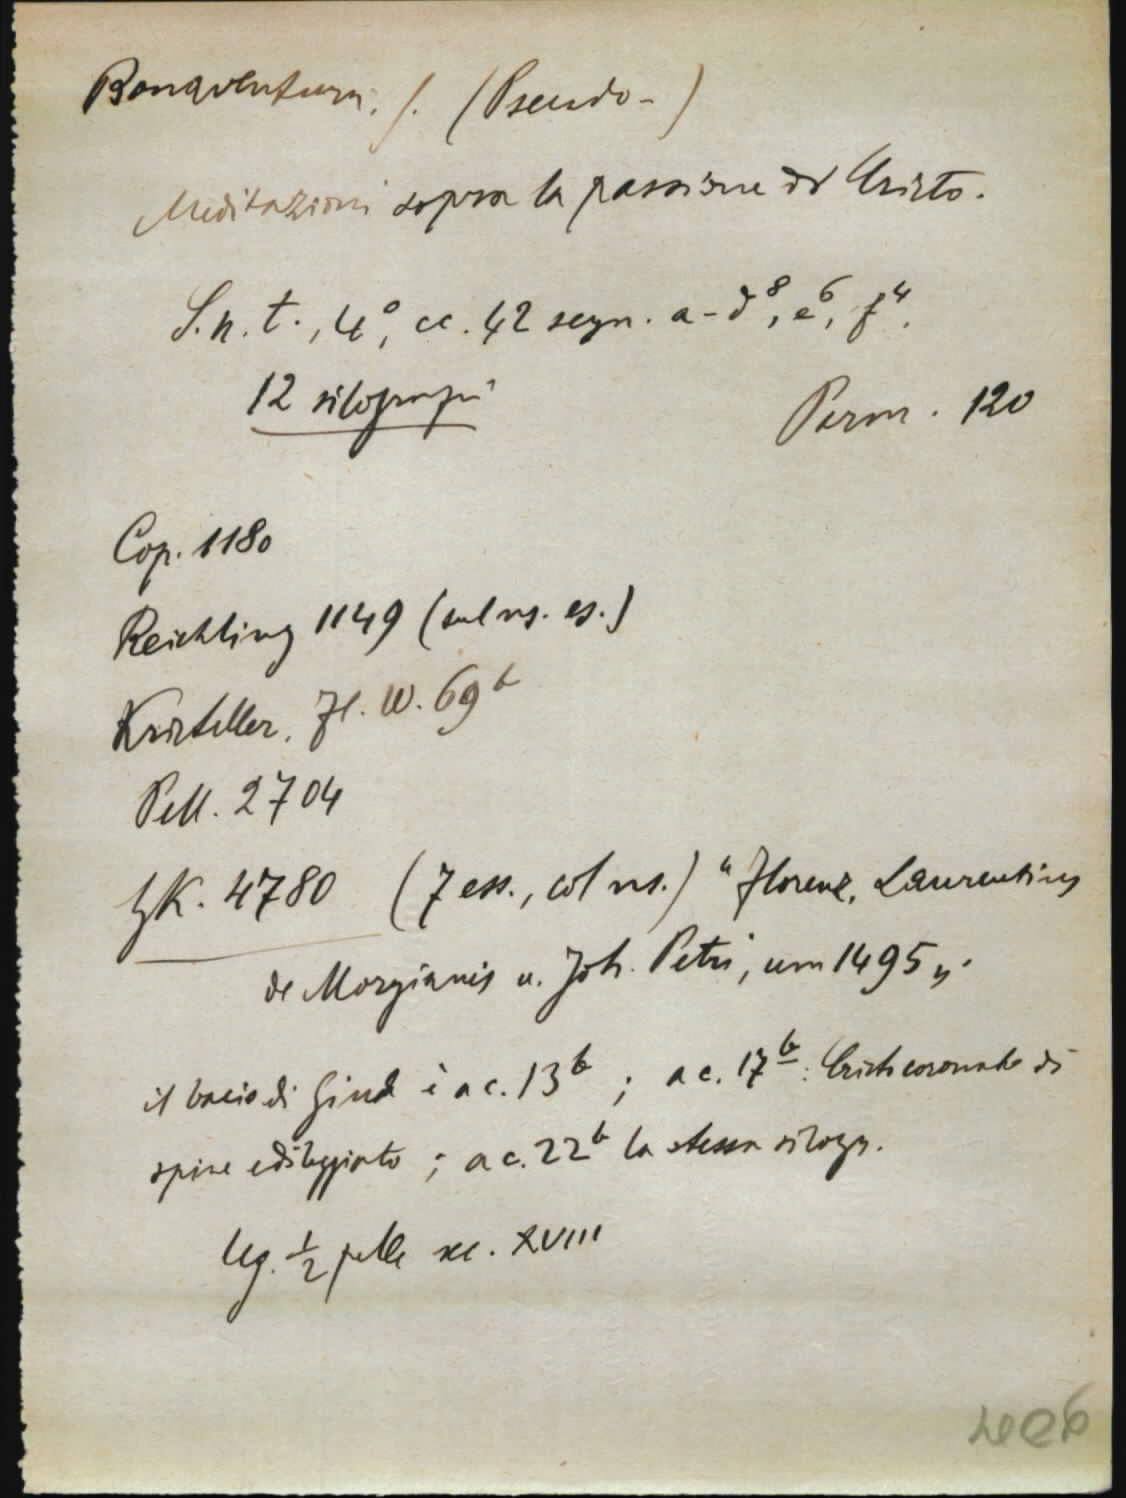 Bonaventura, s. (Pseudo-)
Meditazioni sopra la passione di Cristo.
S.n.t., 4°, cc. 42 segn. a-d⁸, e⁶, f⁴.
12 silografie
Parm. 120
Cop. 1180
Reichling 1149 (sul ns. es.)
Kristeller. Fl. W. 69ᵇ
Pell. 2704
GK. 4780 (7 ess., col ns.) "Florenz, Laurentius
de Morgianis u. Joh. Petri, um 1495".
il bacio di Giuda è a c. 13ᵇ ; a c. 17ᵇ : Cristo coronato di
spine e dileggiato ; a c. 22ᵇ la stessa silogr.
Leg. ½ pelle sec. XVIII